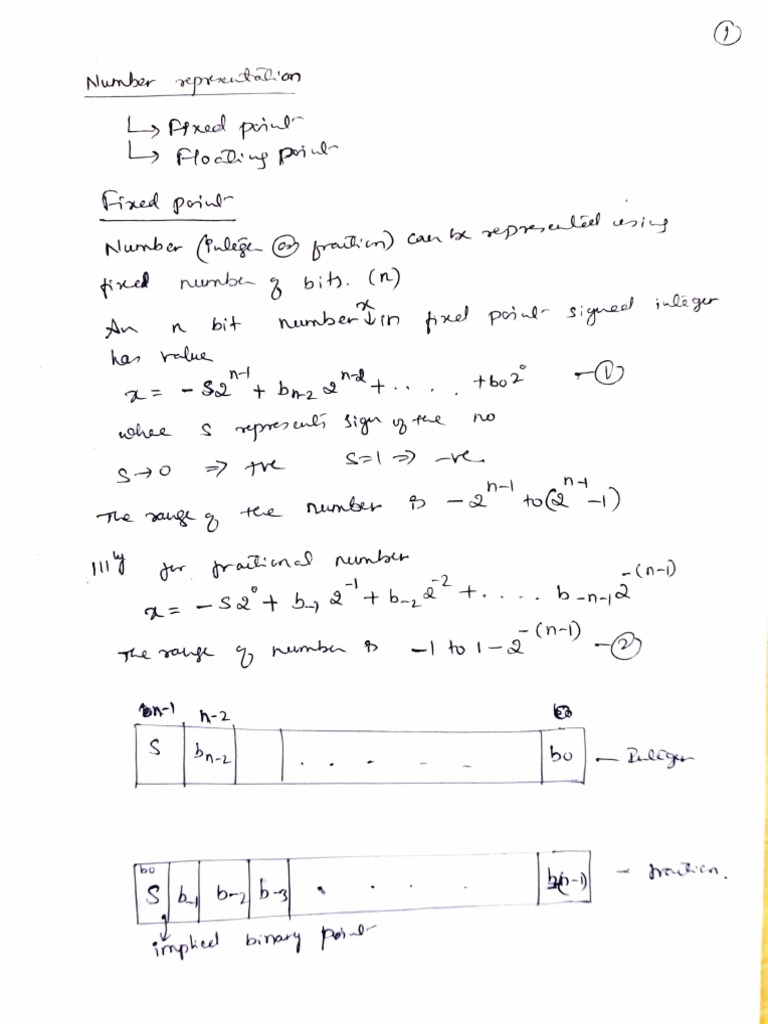 ①
Number representation
↳ Fixed point
↳ Floating point
Fixed point
Number (Integer (or) fraction) can be represented using
fixed number of bits. (n)
An n bit number x in fixed point signed integer
has value
x = - S2^{n-1} + b_{n-2} 2^{n-2} + . . . . + b0 2^0 — ①
where S represents sign of the no
S → 0 ⇒ +ve S=1 ⇒ -ve
The range of the number is -2^{n-1} to (2^{n-1} -1)
|||ly for fractional number
x = - S2^0 + b_{-1} 2^{-1} + b_{-2} 2^{-2} + . . . . b_{-n-1} 2^{-(n-1)}
The range of number is -1 to 1 - 2^{-(n-1)} — ②
n-1 n-2
S b_{n-2} . . . - - b0 — Integer
b0
S b_{-1} b_{-2} b_{-3} . . . . (n-1) — fraction.
implied binary point